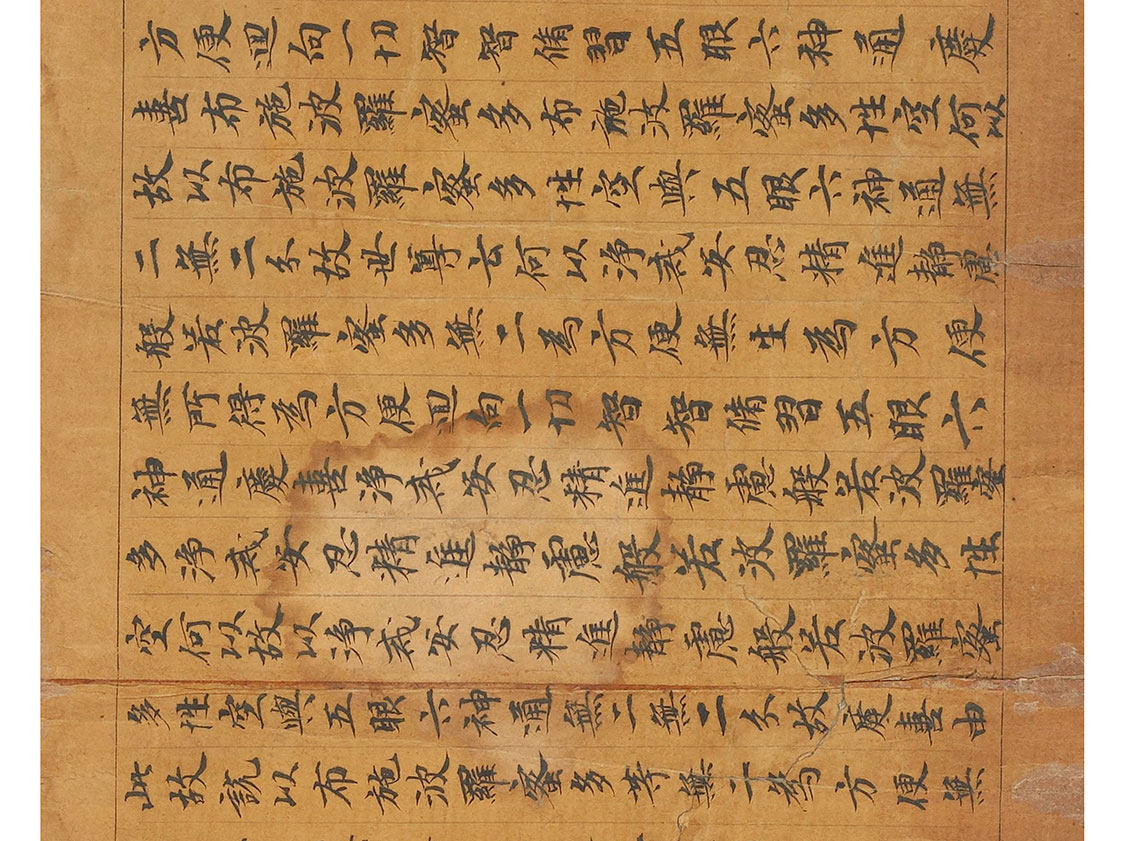 方便迴向一切智智修習五眼六神通慶
喜布施波羅蜜多布施波羅蜜多性空何以
故以布施波羅蜜多性空與五眼六神通無
二無二分故世尊云何以淨戒安忍精進靜慮
般若波羅蜜多無二為方便無生為方便
無所得為方便迴向一切智智修習五眼六
神通慶喜淨戒安忍精進靜慮般若波羅蜜
多淨戒安忍精進靜慮般若波羅蜜多性
空何以故以淨戒安忍精進靜慮般若波羅蜜
多性空與五眼六神通無二無二分故慶喜由
此故說以布施波羅蜜多等無二為方便無